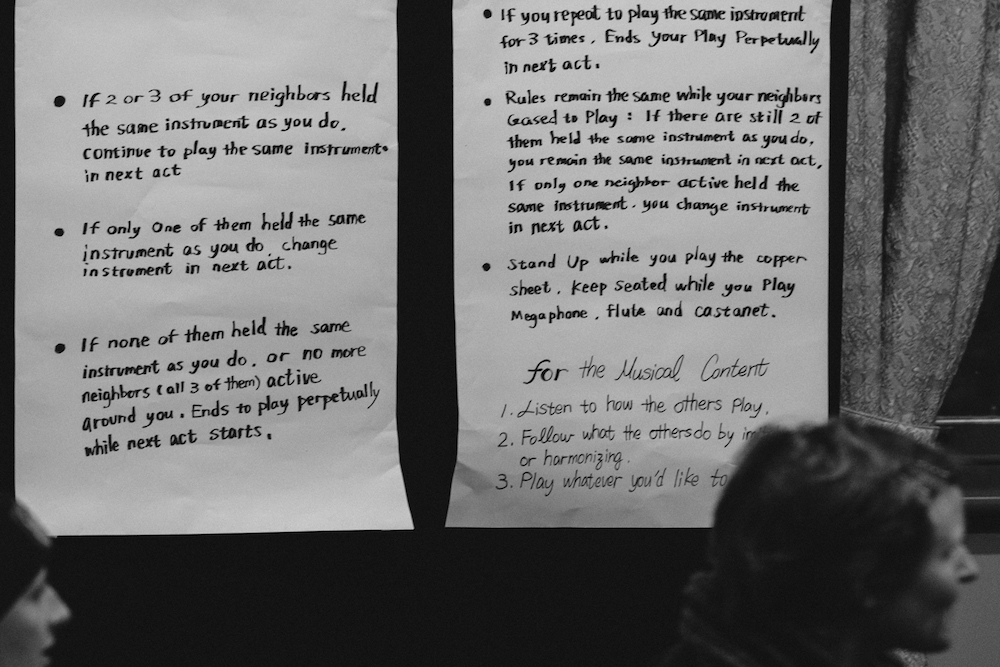 • If 2 or 3 of your neighbors held
the same instrument as you do,
continue to play the same instrument
in next act
• If only one of them held the same
instrument as you do, change
instrument in next act.
• If none of them held the same
instrument as you do, or no more
neighbors (all 3 of them) active
around you. Ends to play perpetually
while next act starts.
• If you repeat to play the same instrument
for 3 times, Ends Your Play Perpetually
in next act.
• Rules remain the same while your neighbors
Ceased to Play : If there are still 2 of
them held the same instrument as you do,
you remain the same instrument in next act,
If only one neighbor active held the
same instrument. you change instrument
in next act.
• Stand Up while you play the copper
sheet, Keep Seated while you Play
Megaphone, flute and castanet.
for the Musical Content
1. Listen to how the others Play.
2. Follow what the others do by
or harmonizing.
3. Play whatever you'd like to